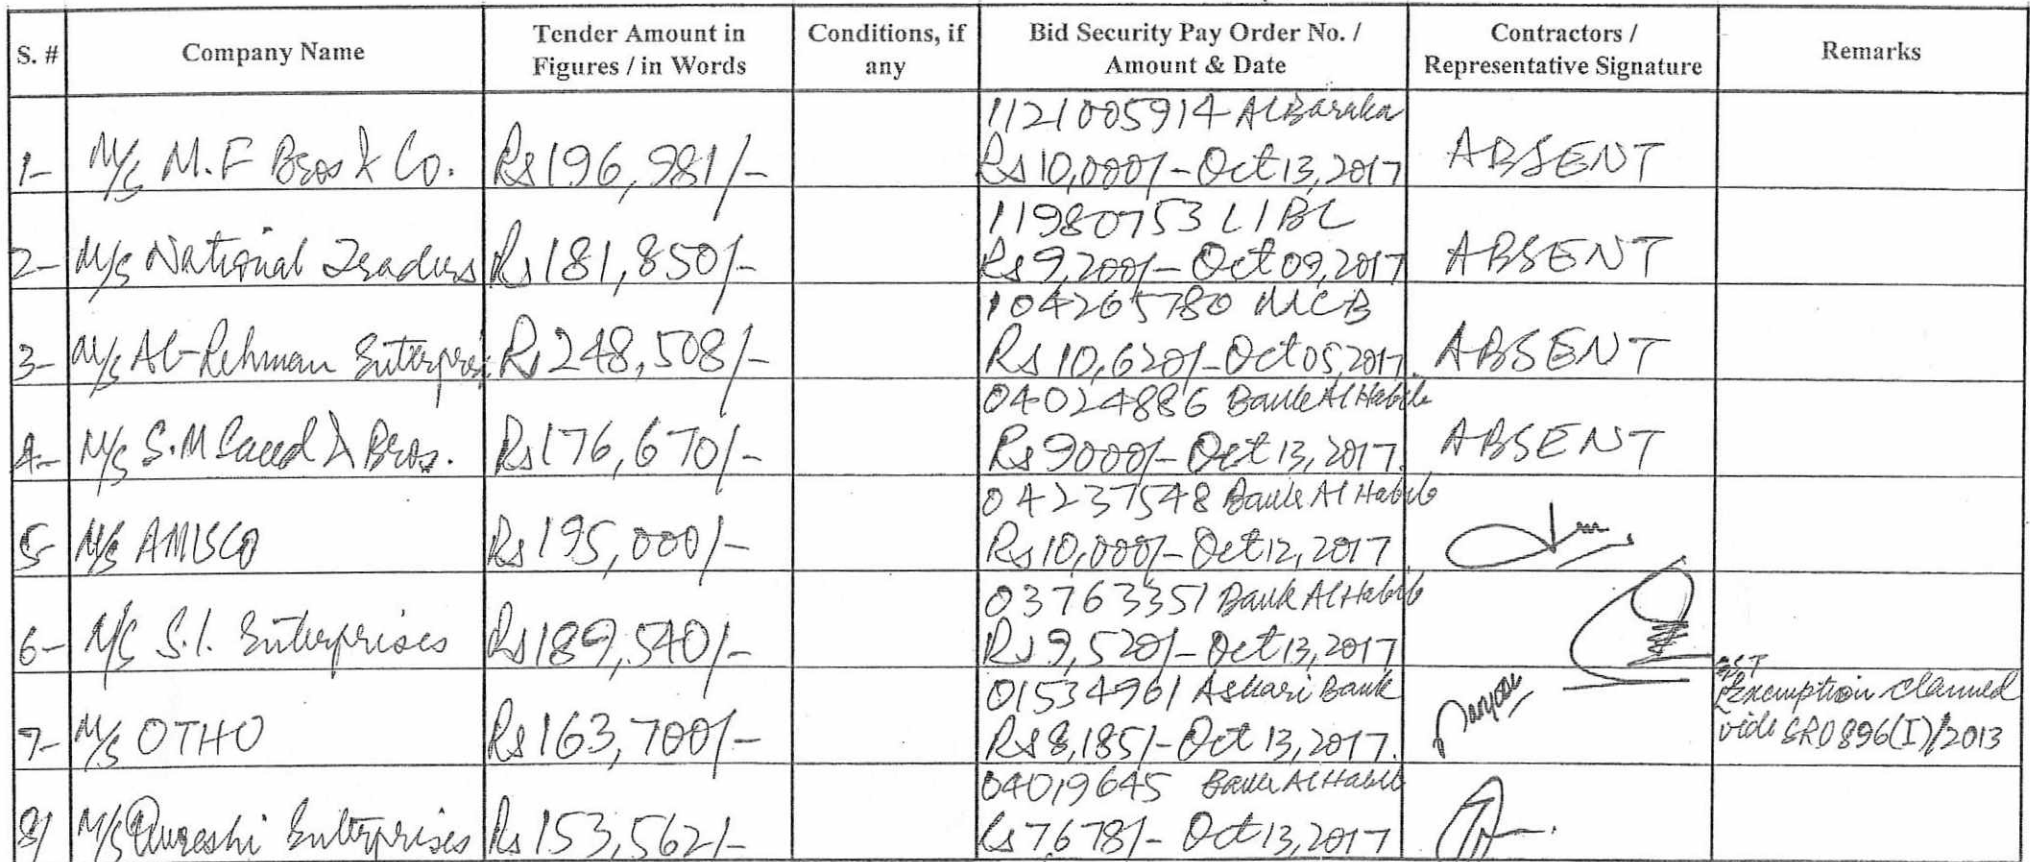 S. # Company Name Tender Amount in Figures / in Words Conditions, if any Bid Security Pay Order No. / Amount & Date Contractors / Representative Signature Remarks
1- M/s M.F Bros & Co. Rs 196,981/- 1121005914 AlBaraka Rs 10,000/- Oct 13, 2017 ABSENT
2- M/s National Traders Rs 181,850/- 11980753 LIBL Rs 9,200/- Oct 09, 2017 ABSENT
3- M/s Al-Rehman Enterprise Rs 248,508/- 104265780 MCB Rs 10,620/- Oct 05, 2017 ABSENT
4- M/s S.M Saeed & Bros. Rs 176,670/- 04024886 Bank Al Habib Rs 9000/- Oct 13, 2017. ABSENT
5- M/s AMISCO Rs 195,000/- 04237548 Bank Al Habib Rs 10,000/- Oct 12, 2017
6- M/s S.I. Enterprises Rs 189,540/- 03763351 Bank Al Habib Rs 9,520/- Oct 13, 2017
7- M/s OTHO Rs 163,700/- 01534961 Askari Bank Rs 8,185/- Oct 13, 2017. GST Exemption claimed vide SRO 896(I)/2013
8/ M/s Qureshi Enterprises Rs 153,562/- 04019645 Bank Al Habib Rs 7678/- Oct 13, 2017